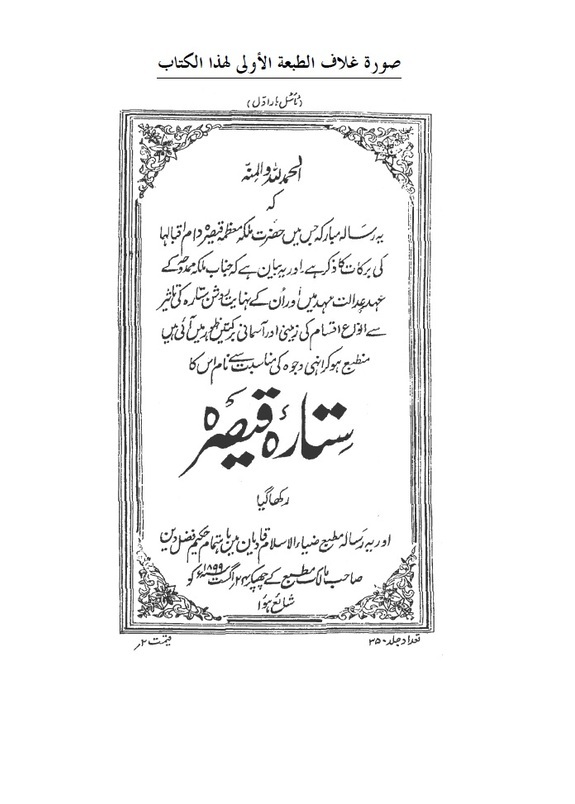 صورة غلاف الطبعة الأولى لهذا الكتاب
(ٹائٹل بار اوّل)
الحمد للہ والمنہ
کہ
یہ رسالہ مبارکہ جس میں حضرت ملکہ معظمہ قیصرہ دام اقبالہا
کی برکات کا ذکر ہے اور یہ بیان ہے کہ جناب ملکہ ممدوحہ کے
عہد عدالت مہد میں اور اُن کے نہایت روشن ستارہ کی تاثیر
سے انواع اقسام کی زمینی اور آسمانی برکتیں ظہور میں آئی ہیں
منطبع ہو کر انہی وجوہ کی مناسبت سے نام اس کا
ستارہٴ قیصرہ
رکھا گیا
اور یہ رسالہ مطبع ضیاء الاسلام قادیان میں باہتمام حکیم فضل دین
صاحب مالک مطبع کے چھپکر ۲۴ اگست ۱۸۹۹ء کو
شائع ہوا
تعداد جلد ۳۵۰
قیمت ۲؍